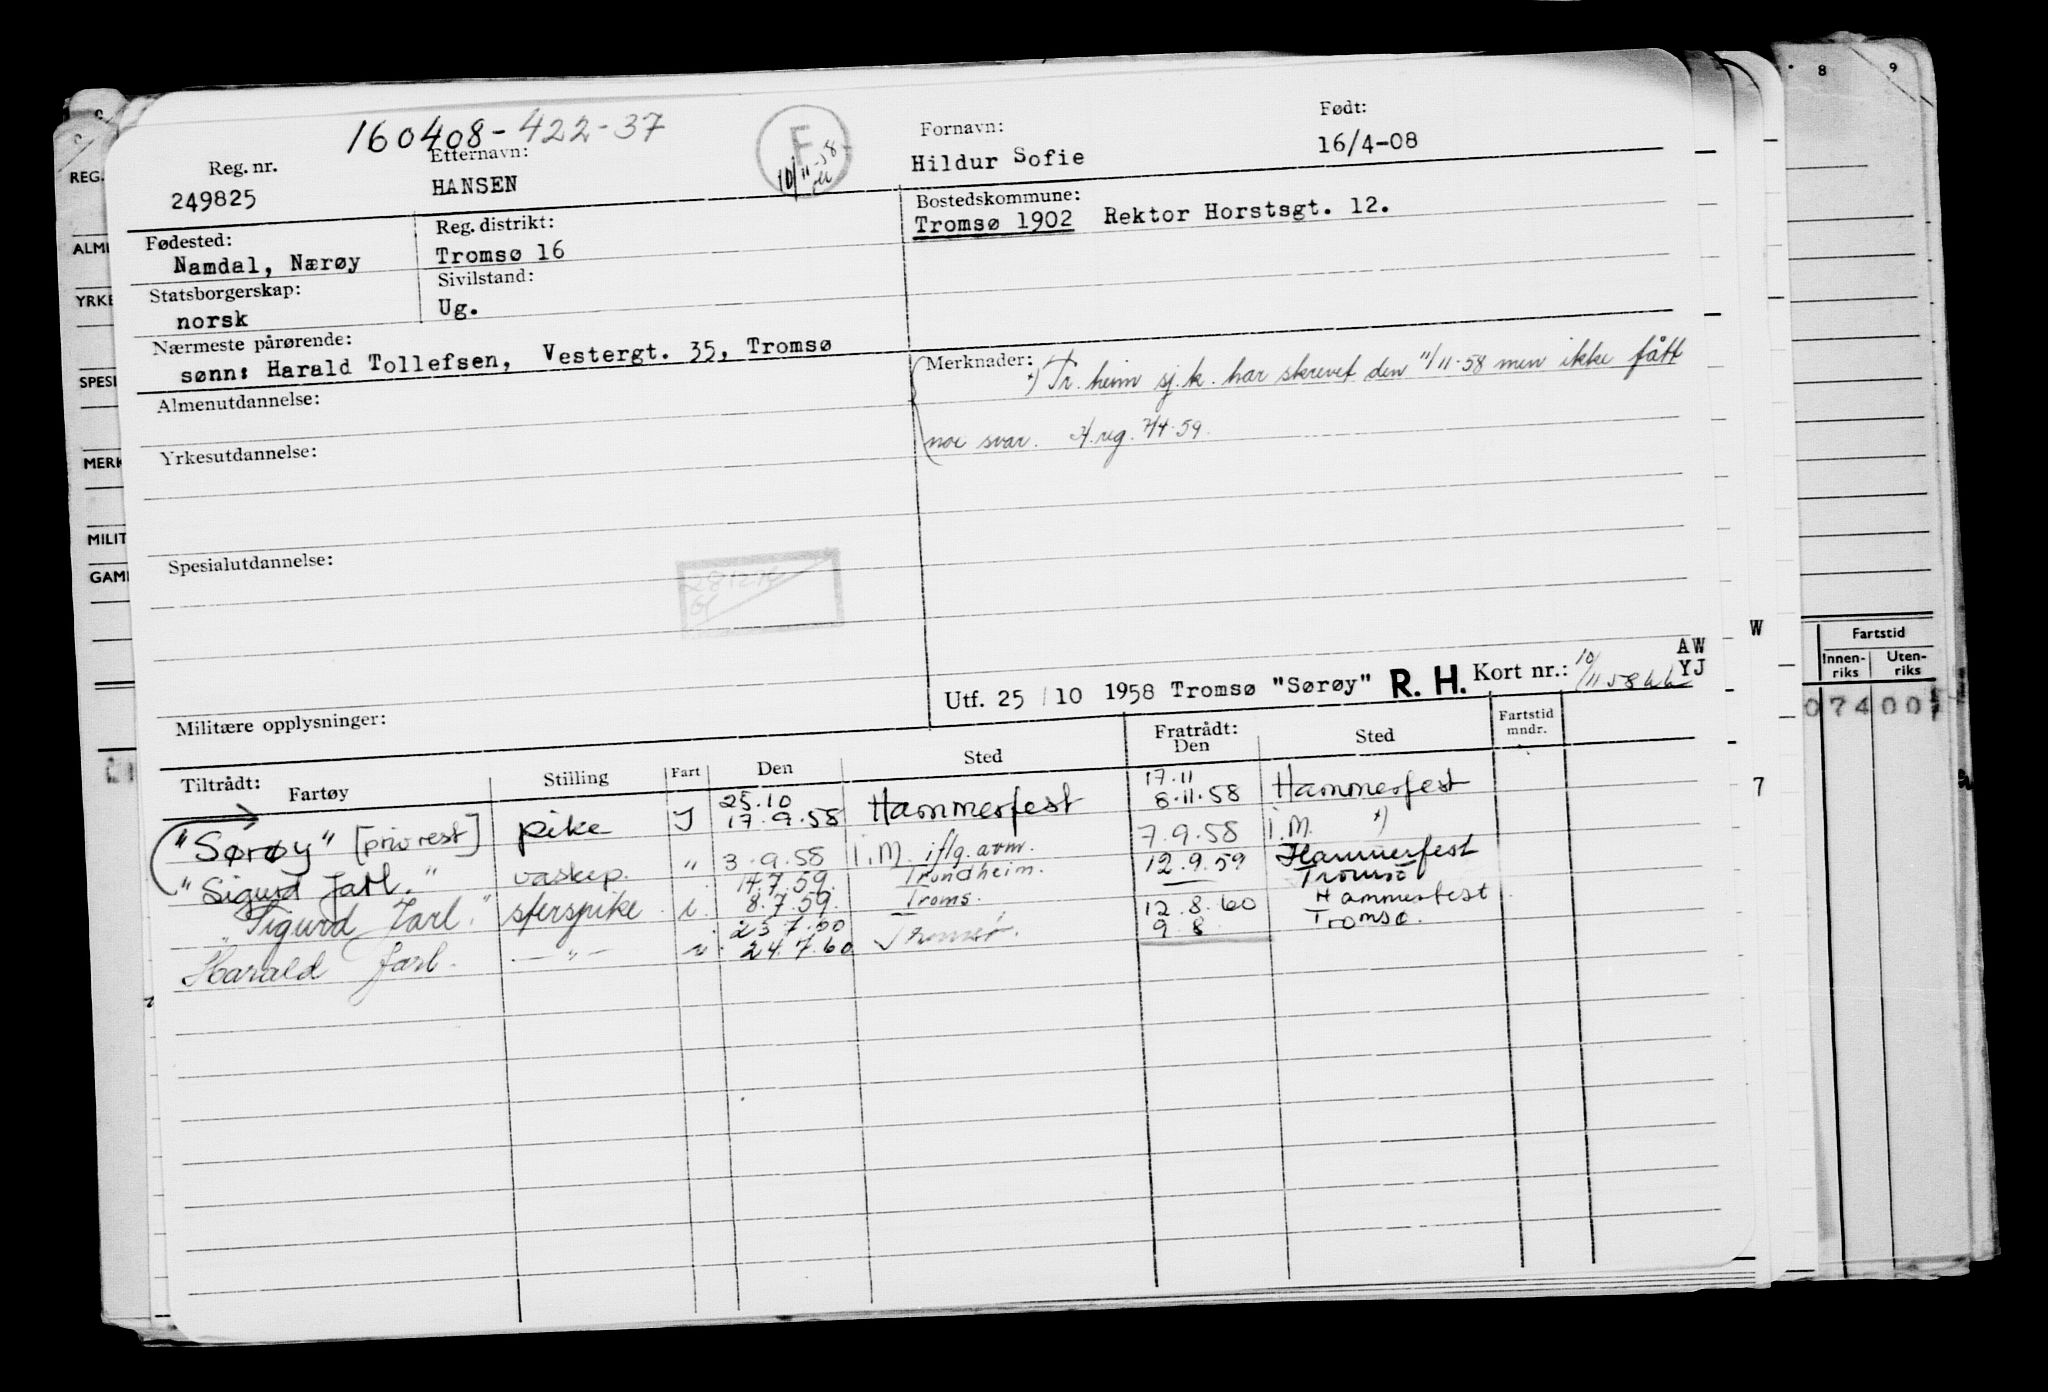 8 9
160408-422-37
Reg. nr. Etternavn: F Fornavn: Født:
249825 HANSEN 10/11-58 Hildur Sofie 16/4-08
Fødested: Reg. distrikt: Bostedskommune:
Namdal, Nærøy Tromsø 16 Tromsø 1902 Rektor Horstsgt. 12.
Statsborgerskap: Sivilstand:
norsk Ug.
Nærmeste pårørende:
sønn: Harald Tollefsen, Vestergt. 35, Tromsø
Merknader: x) Tr.heim sj.k. har skrevet den 11/11-58 men ikke fått
noe svar. A.reg. 7/4-59.
Almenutdannelse:
Yrkesutdannelse:
Spesialutdannelse:
Militære opplysninger:
Utf. 25 / 10 1958 Tromsø "Sørøy" R. H. Kort nr.: 10/11 58
AW
YJ
W
7
Tiltrådt: Fartøy Stilling Fart Den Sted Fratrådt: Den Sted Fartstid mndr.
25.10 17.11
"Sørøy" [priv rest] pike I 17.9.58 Hammerfest 8.11.58 Hammerfest
"Sigurd Jarl." vaskep. " 3.9.58 i.M. iflg. avm. 7.9.58 i.M. x)
14.7.59 Trondheim. 12.9.59 Hammerfest
"Sigurd Jarl." sterspike i. 8.7.59. Troms. Tromsø
23.7.60 12.8.60 Hammerfest
Harald Jarl. —"— i. 24.7.60 Tromsø. 9.8 Tromsø.
REG.
ALM
YRKE
SPESI
MERK
MILIT
GAMI
Fartstid
Innen-
riks
Uten-
riks
074 00